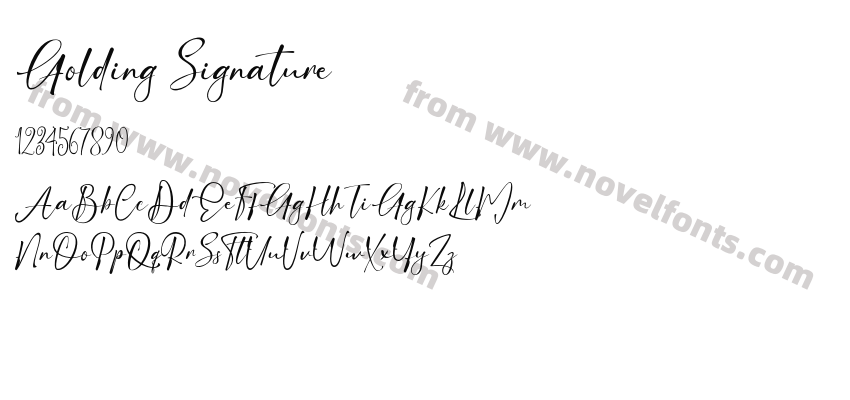 Golding Signature
1234567890
AaBbCcDdEeFfGgHhIiGgKkLlMm
NnOoPpQqRrSsTtUuVvWwXxYyZz
from www.novelfonts.com
from www.novelfonts.com